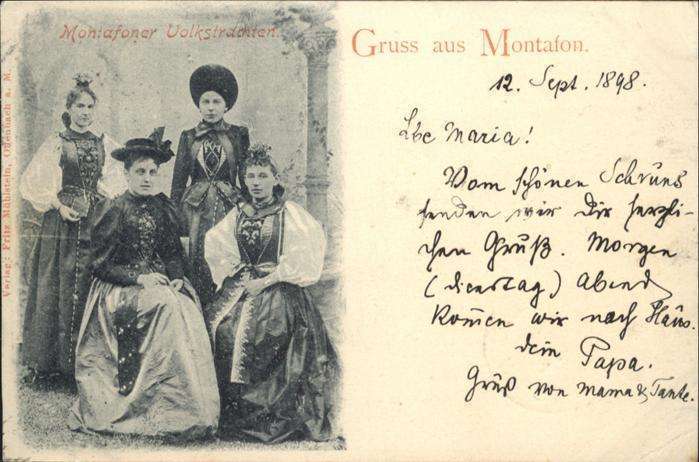 Montafoner Volkstrachten.
Gruss aus Montafon.
12. Sept. 1898.
Lbe Maria!
Vom schönen Schruns
senden wir Dir herzli-
chen Gruß. Morgen
(Dienstag) Abend
kom̅en wir nach Haus.
dein Papa.
Gruß von Mama & Tante.
Verlag: Fritz Mühlstein, Offenbach a. M.